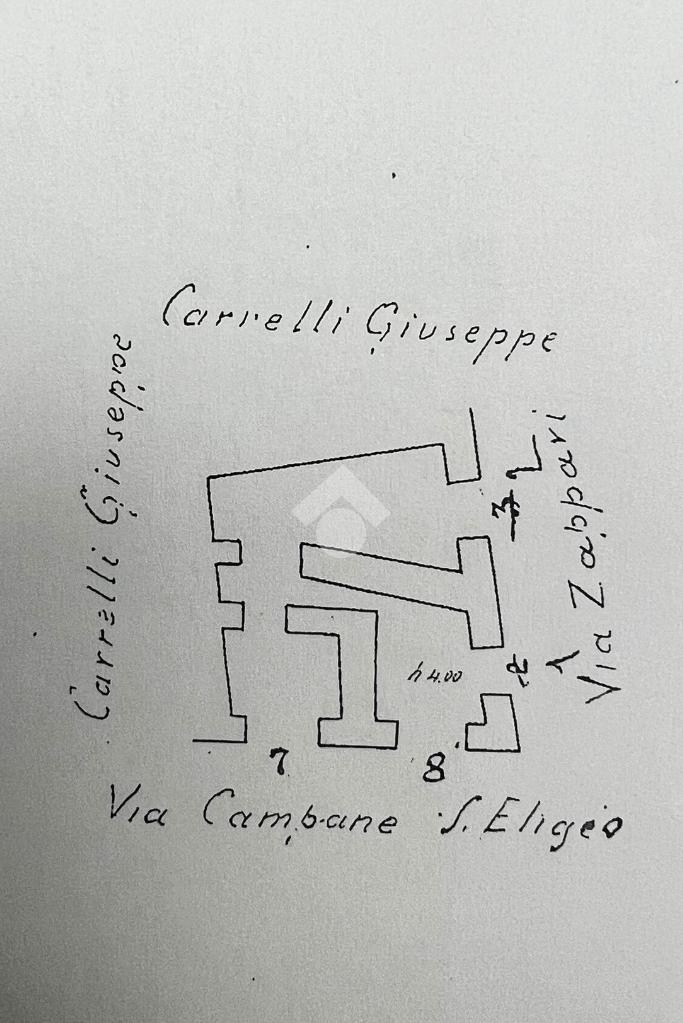 Carrelli Giuseppe
Carrelli Giuseppe
Via Zappari
h 4.00
7
8
Via Campane S. Eligio